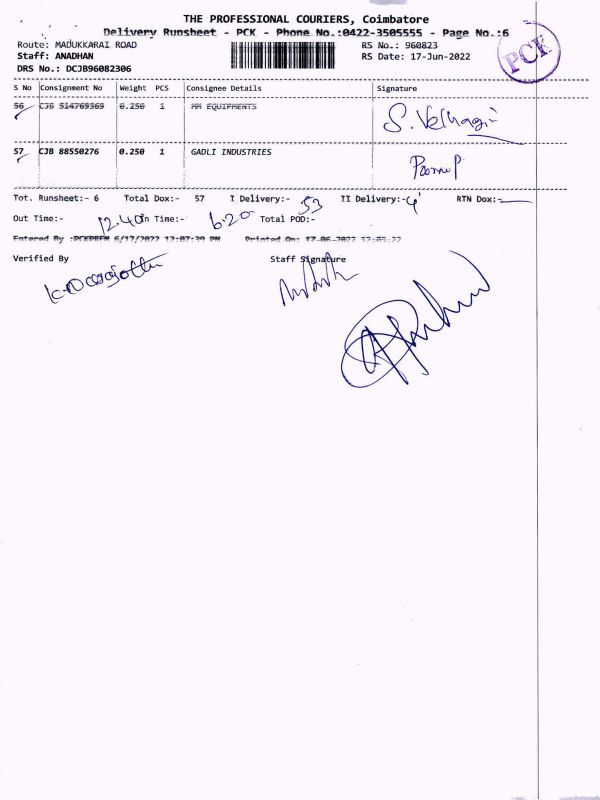 THE PROFESSIONAL COURIERS, Coimbatore
Delivery Runsheet - PCK - Phone No.:0422-3505555 - Page No.:6
Route: MADUKKARAI ROAD RS No.: 960823
Staff: ANADHAN RS Date: 17-Jun-2022
DRS No.: DCJB96082306
PCK
S No Consignment No Weight PCS Consignee Details Signature
56 CJB 514769369 0.250 1 MM EQUIPMENTS
57 CJB 88550276 0.250 1 GADLI INDUSTRIES
Tot. Runsheet:- 6 Total Dox:- 57 I Delivery:- 53 II Delivery:- 4 RTN Dox:-
Out Time:- 12.40 In Time:- 6.20 Total POD:-
Entered By :PCKPBFM 6/17/2022 12:07:39 PM Printed On: 17-06-2022
Verified By Staff Signature